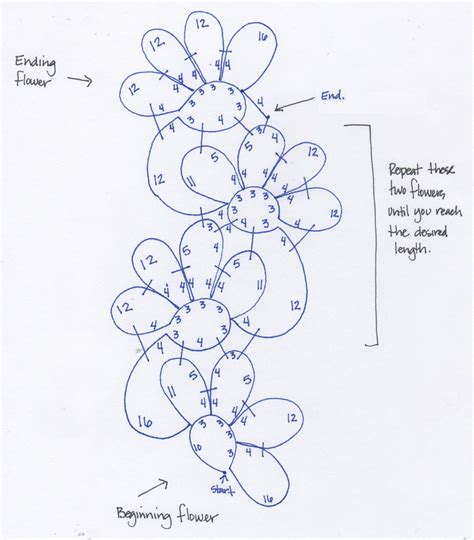 12
12
16
Ending
flower
4 4 4 4
12
4
3 3 3
3
3
4
End.
4
4
3
5
12
11
5
4
4
4
4 4
12
3
3 3 3
3
4
4
12
5
5
4
12
4 4 4 4
11
12
4
3 3 3
3
3
4
3
5
5
11
4
16
4 4
4
12
4
3 3 3
3
10
3
4
4
16
Start
Repeat these
two flowers,
until you reach
the desired
length.
Beginning flower